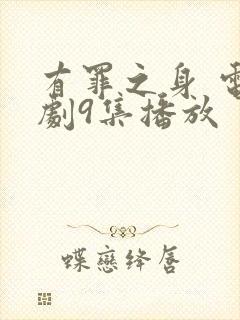 有罪之身 電
劇9集播放
蝶戀绛唇